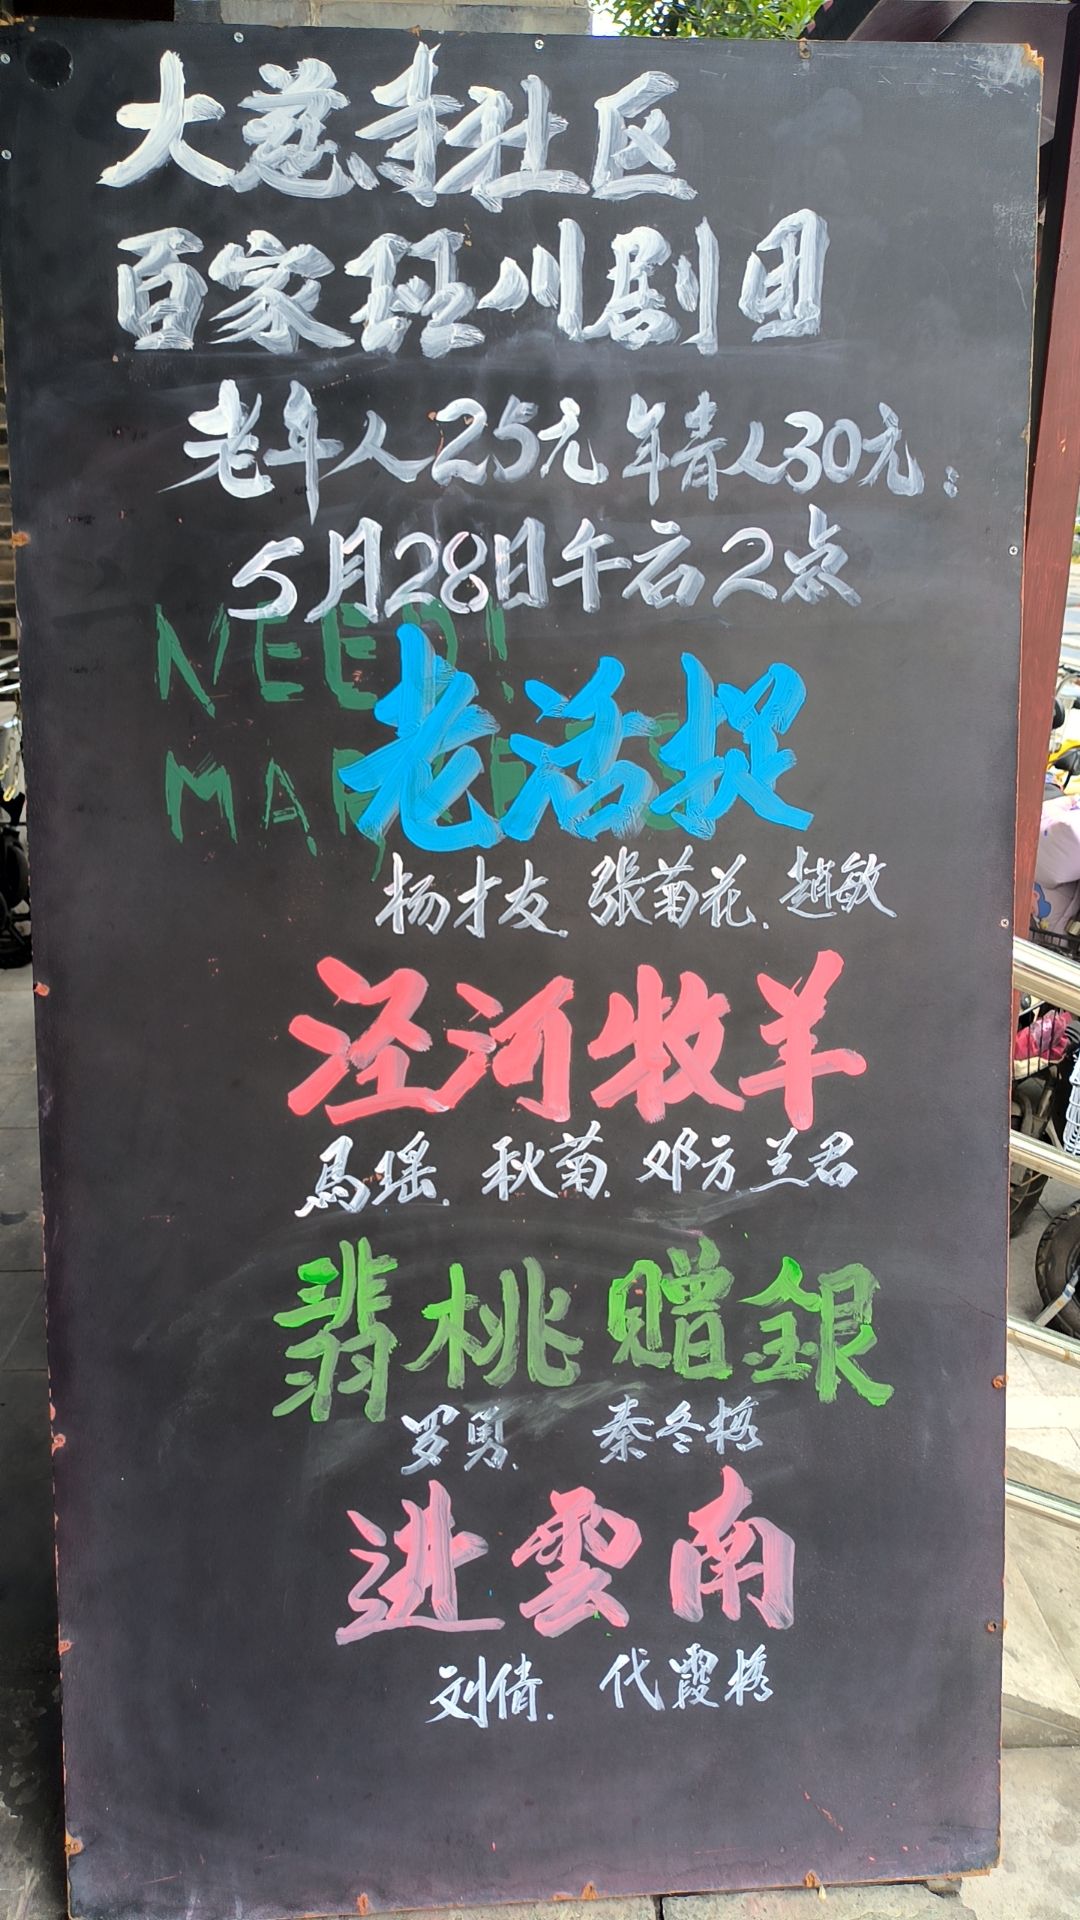 大慈寺社区
百家班川剧团
老年人25元 年青人30元:
5月28日午后2点
NEED!
MAR
老活捉
杨才友 張菊花 趙敏
泾河牧羊
馬瑶 秋菊 邓方兰君
翡桃赠銀
罗勇 秦冬梅
进雲南
刘倩 代霞梅